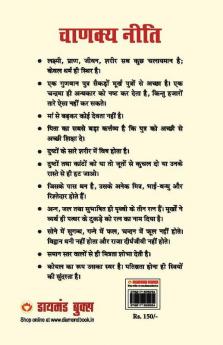 चाणक्य नीति
लक्ष्मी, प्राण, जीवन, शरीर सब कुछ चलायमान है;
केवल धर्म ही स्थिर है।
एक गुणवान पुत्र सैकड़ों मूर्ख पुत्रों से अच्छा है। एक
चन्द्रमा ही अन्धकार को नष्ट कर देता है, किन्तु हजारों
तारे ऐसा नहीं कर सकते।
मां से बढ़कर कोई देवता नहीं है।
पिता का सबसे बड़ा कर्त्तव्य है कि पुत्र को अच्छी से
अच्छी शिक्षा दे।
दुष्टों के सारे शरीर में विष होता है।
दुष्टों तथा कांटों को या तो जूतों से कुचल दो या उनके
रास्ते से ही हट जाओ।
जिसके पास धन है, उसके अनेक मित्र, भाई-बन्धु और
रिश्तेदार होते हैं।
अन्न, जल तथा सुभाषित ही पृथ्वी के तीन रत्न हैं। मूर्खों ने
व्यर्थ ही पत्थर के टुकड़े को रत्न का नाम दिया है।
सोने में सुगन्ध, गन्ने में फल, चन्दन में फूल नहीं होते।
विद्वान धनी नहीं होता और राजा दीर्घजीवी नहीं होते।
समान स्तर वालों से ही मित्रता शोभा देती है।
कोयल का रूप उसका स्वर है। पतिव्रता होना ही स्त्रियों
की सुंदरता है।
डायमंड बुक्स
Shop online at www.diamondbook.in
Rs. 150/-